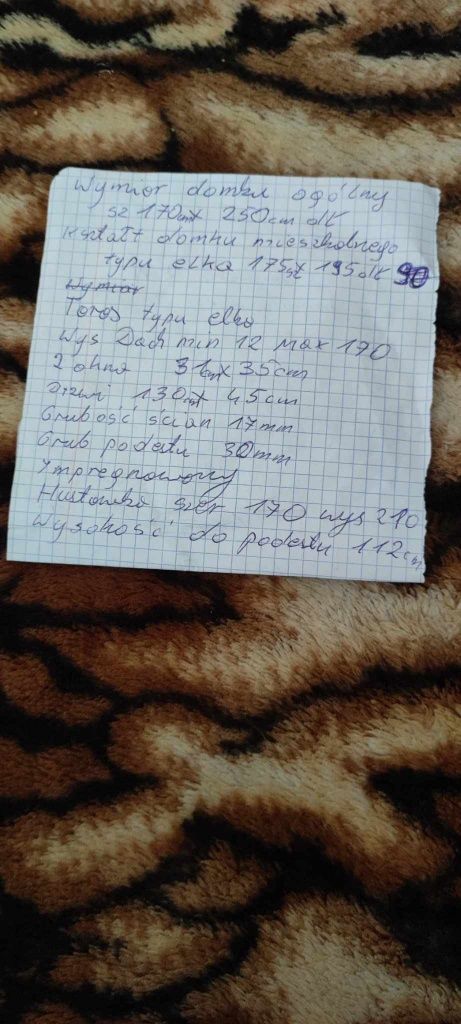 Wymiar domku ogólny
sz 170cm x 250cm dł
Kształt domku mieszkalnego
typu elka 175sz x 195 dł 90
Wymiar
Taras typu elka
Wys Dach min 12 max 170
2 okna 31cm x 35cm
Drzwi 130cm x 45cm
Grubość ścian 17mm
Grub podestu 30mm
Impregnowany
Hustawka szer 170 wys 210
Wysokość do podestu 112cm